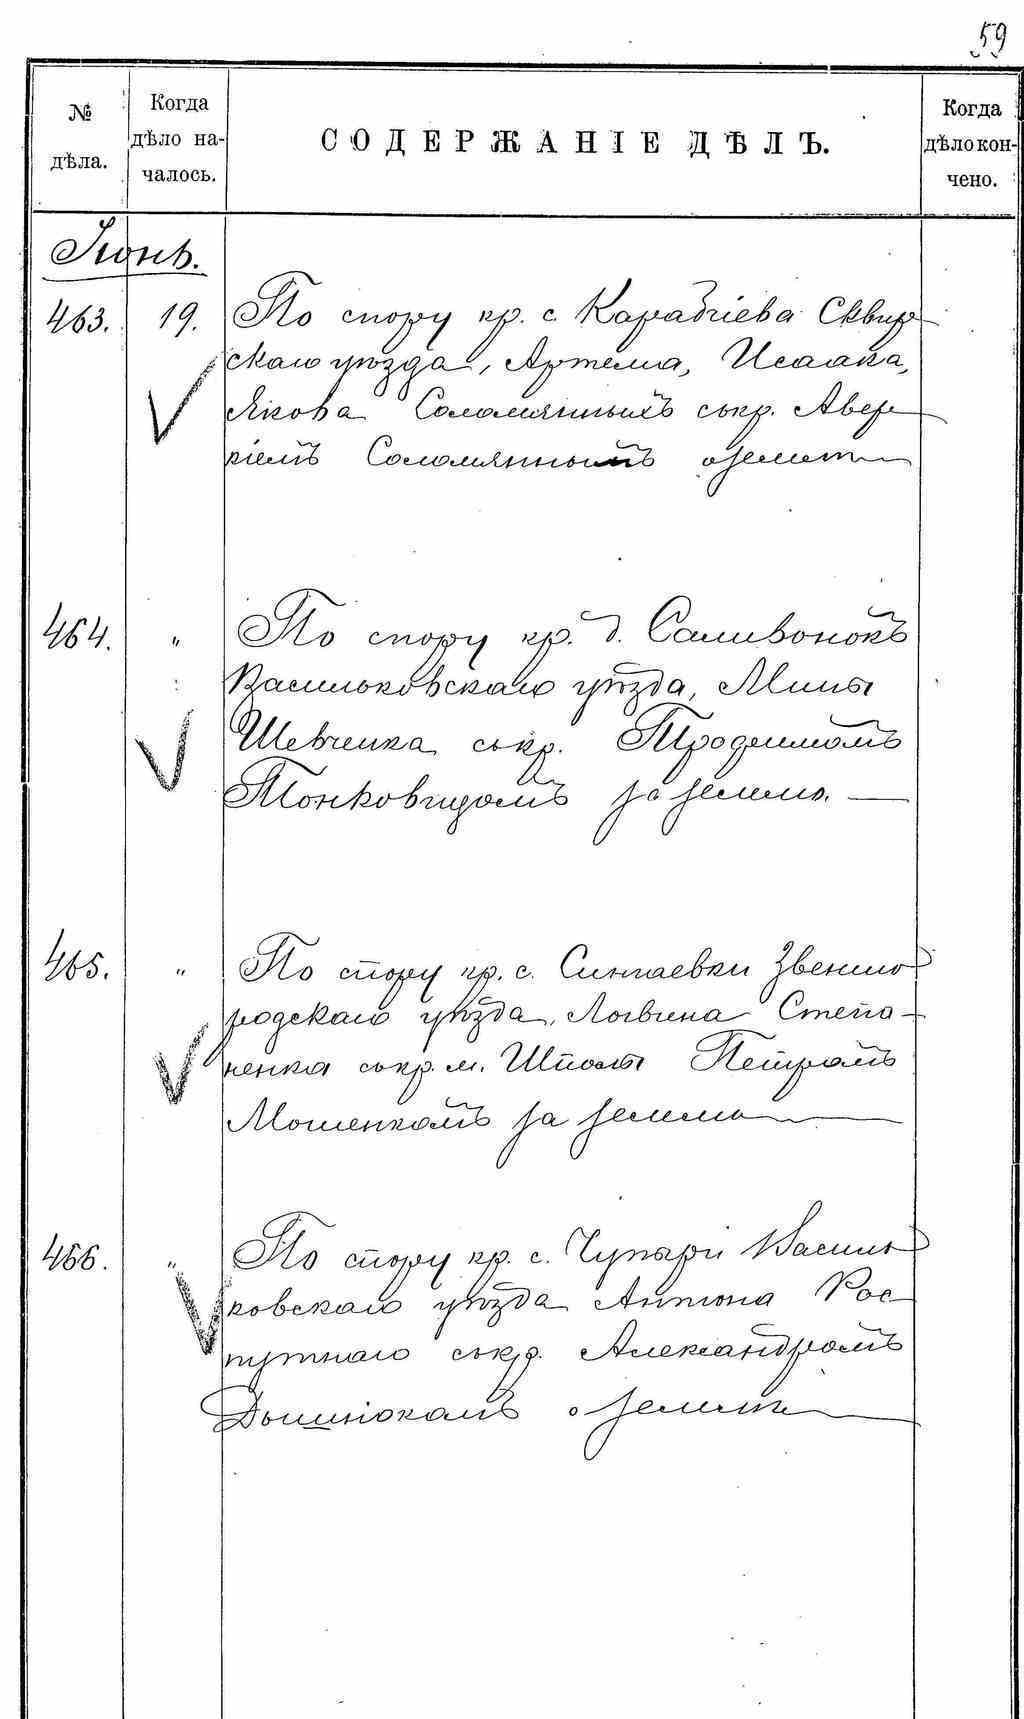 59
№ дѣла.
Когда дѣло началось.
СОДЕРЖАНІЕ ДѢЛЪ.
Когда дѣло кончено.
Іюнь.
463. 19. По спору кр. с. Карабчіева Сквир-
скаго уѣзда, Артема, Исаака,
Якова Соломянныхъ съ кр. Авер-
кіемъ Соломяннымъ о землѣ
464. " По спору кр. д. Саливонокъ
Васильковскаго уѣзда, Мины
Шевченка съ кр. Трофимомъ
Тонковидомъ за землю.
465. " По спору кр. с. Сигнаевки Звениго-
родскаго уѣзда, Логвина Степа-
ненка съ кр. м. Шполы Петромъ
Мошенкомъ за землю
466. " По спору кр. с. Чупыри Василь-
ковскаго уѣзда Антона Рос-
путнаго съ кр. Александромъ
Дышнюкомъ о землѣ